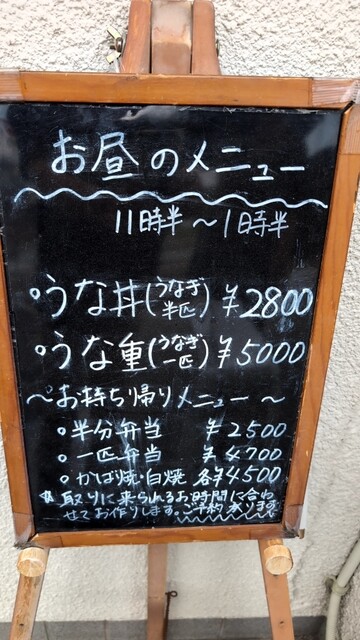 お昼のメニュー
11時半～1時半
うな丼(うなぎ半匹)￥2800
うな重(うなぎ一匹)￥5000
～お持ち帰りメニュー～
半分弁当 ￥2500
一匹弁当 ￥4700
かば焼・白焼 各￥4500
取りに来られるお時間に合わ
せてお作りします。ご予約承ります